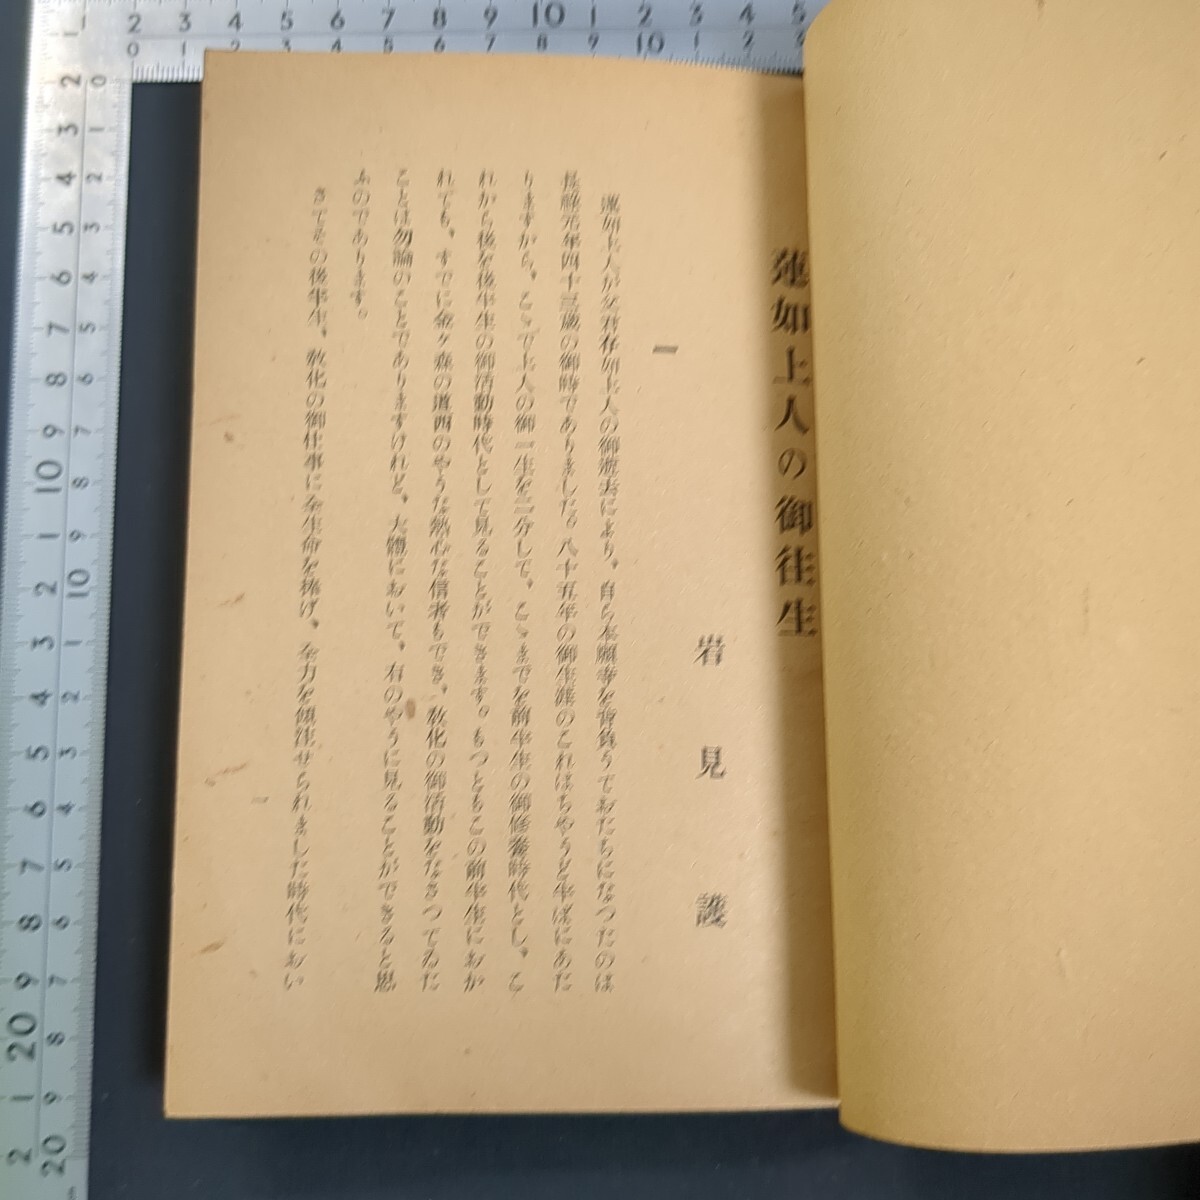 蓮如上人の御往生
岩見護
一
蓮如上人が父君存如上人の御遷去により、自ら本願寺を背負うておたちになつたのは
長祿元年四十三歲の御時でありました。八十五年の御生涯のこれはちやうど半ばにあた
りますから、こゝで上人の御一生を二分して、こゝまでを前半生の御修養時代とし、こ
れから後を後半生の御活動時代として見ることができます。もつともこの前半生におか
れても、すでに金ケ森の道西のやうな熱心な信者もでき、敎化の御活動をなさつてゐた
ことは勿論のことでありますけれど、大體において、右のやうに見ることができると思
ふのであります。
さてその後半生、敎化の御仕事に全生命を捧げ、全力を傾注せられました時代におい